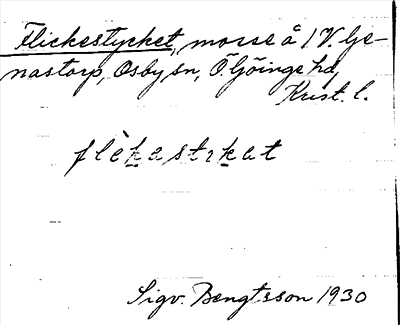 Flickestycket, mosse å 1 V. Ge-
nastorp, Osby sn, Ö. Göinge hd,
Krist. l.
flèkastɪkat
Sigv. Bengtsson 1930